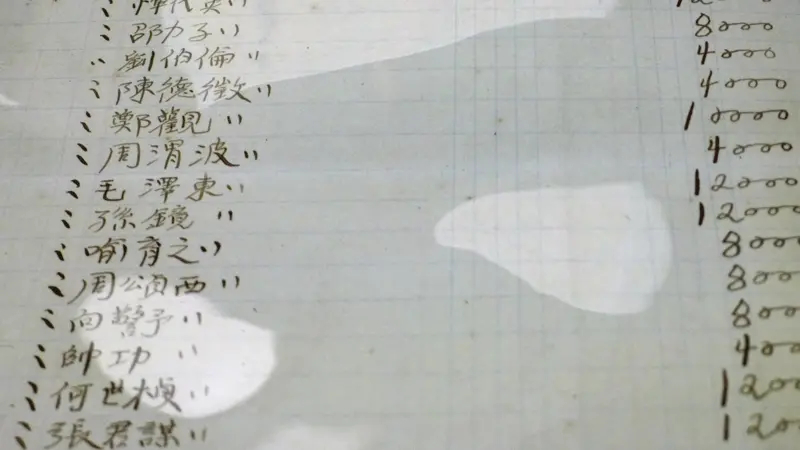 〃 邵力子 〃 8000
〃 劉伯倫 〃 4000
〃 陳德徵 〃 4000
〃 鄭觀 〃 10000
〃 周渭波 〃 4000
〃 毛澤東 〃 12000
〃 孫鏡 〃 12000
〃 喻育之 〃 8000
〃 周頌西 〃 8000
〃 向警予 〃 8000
〃 帥功 〃 400
〃 何世楨 〃 1200
〃 張君謀 〃 1200